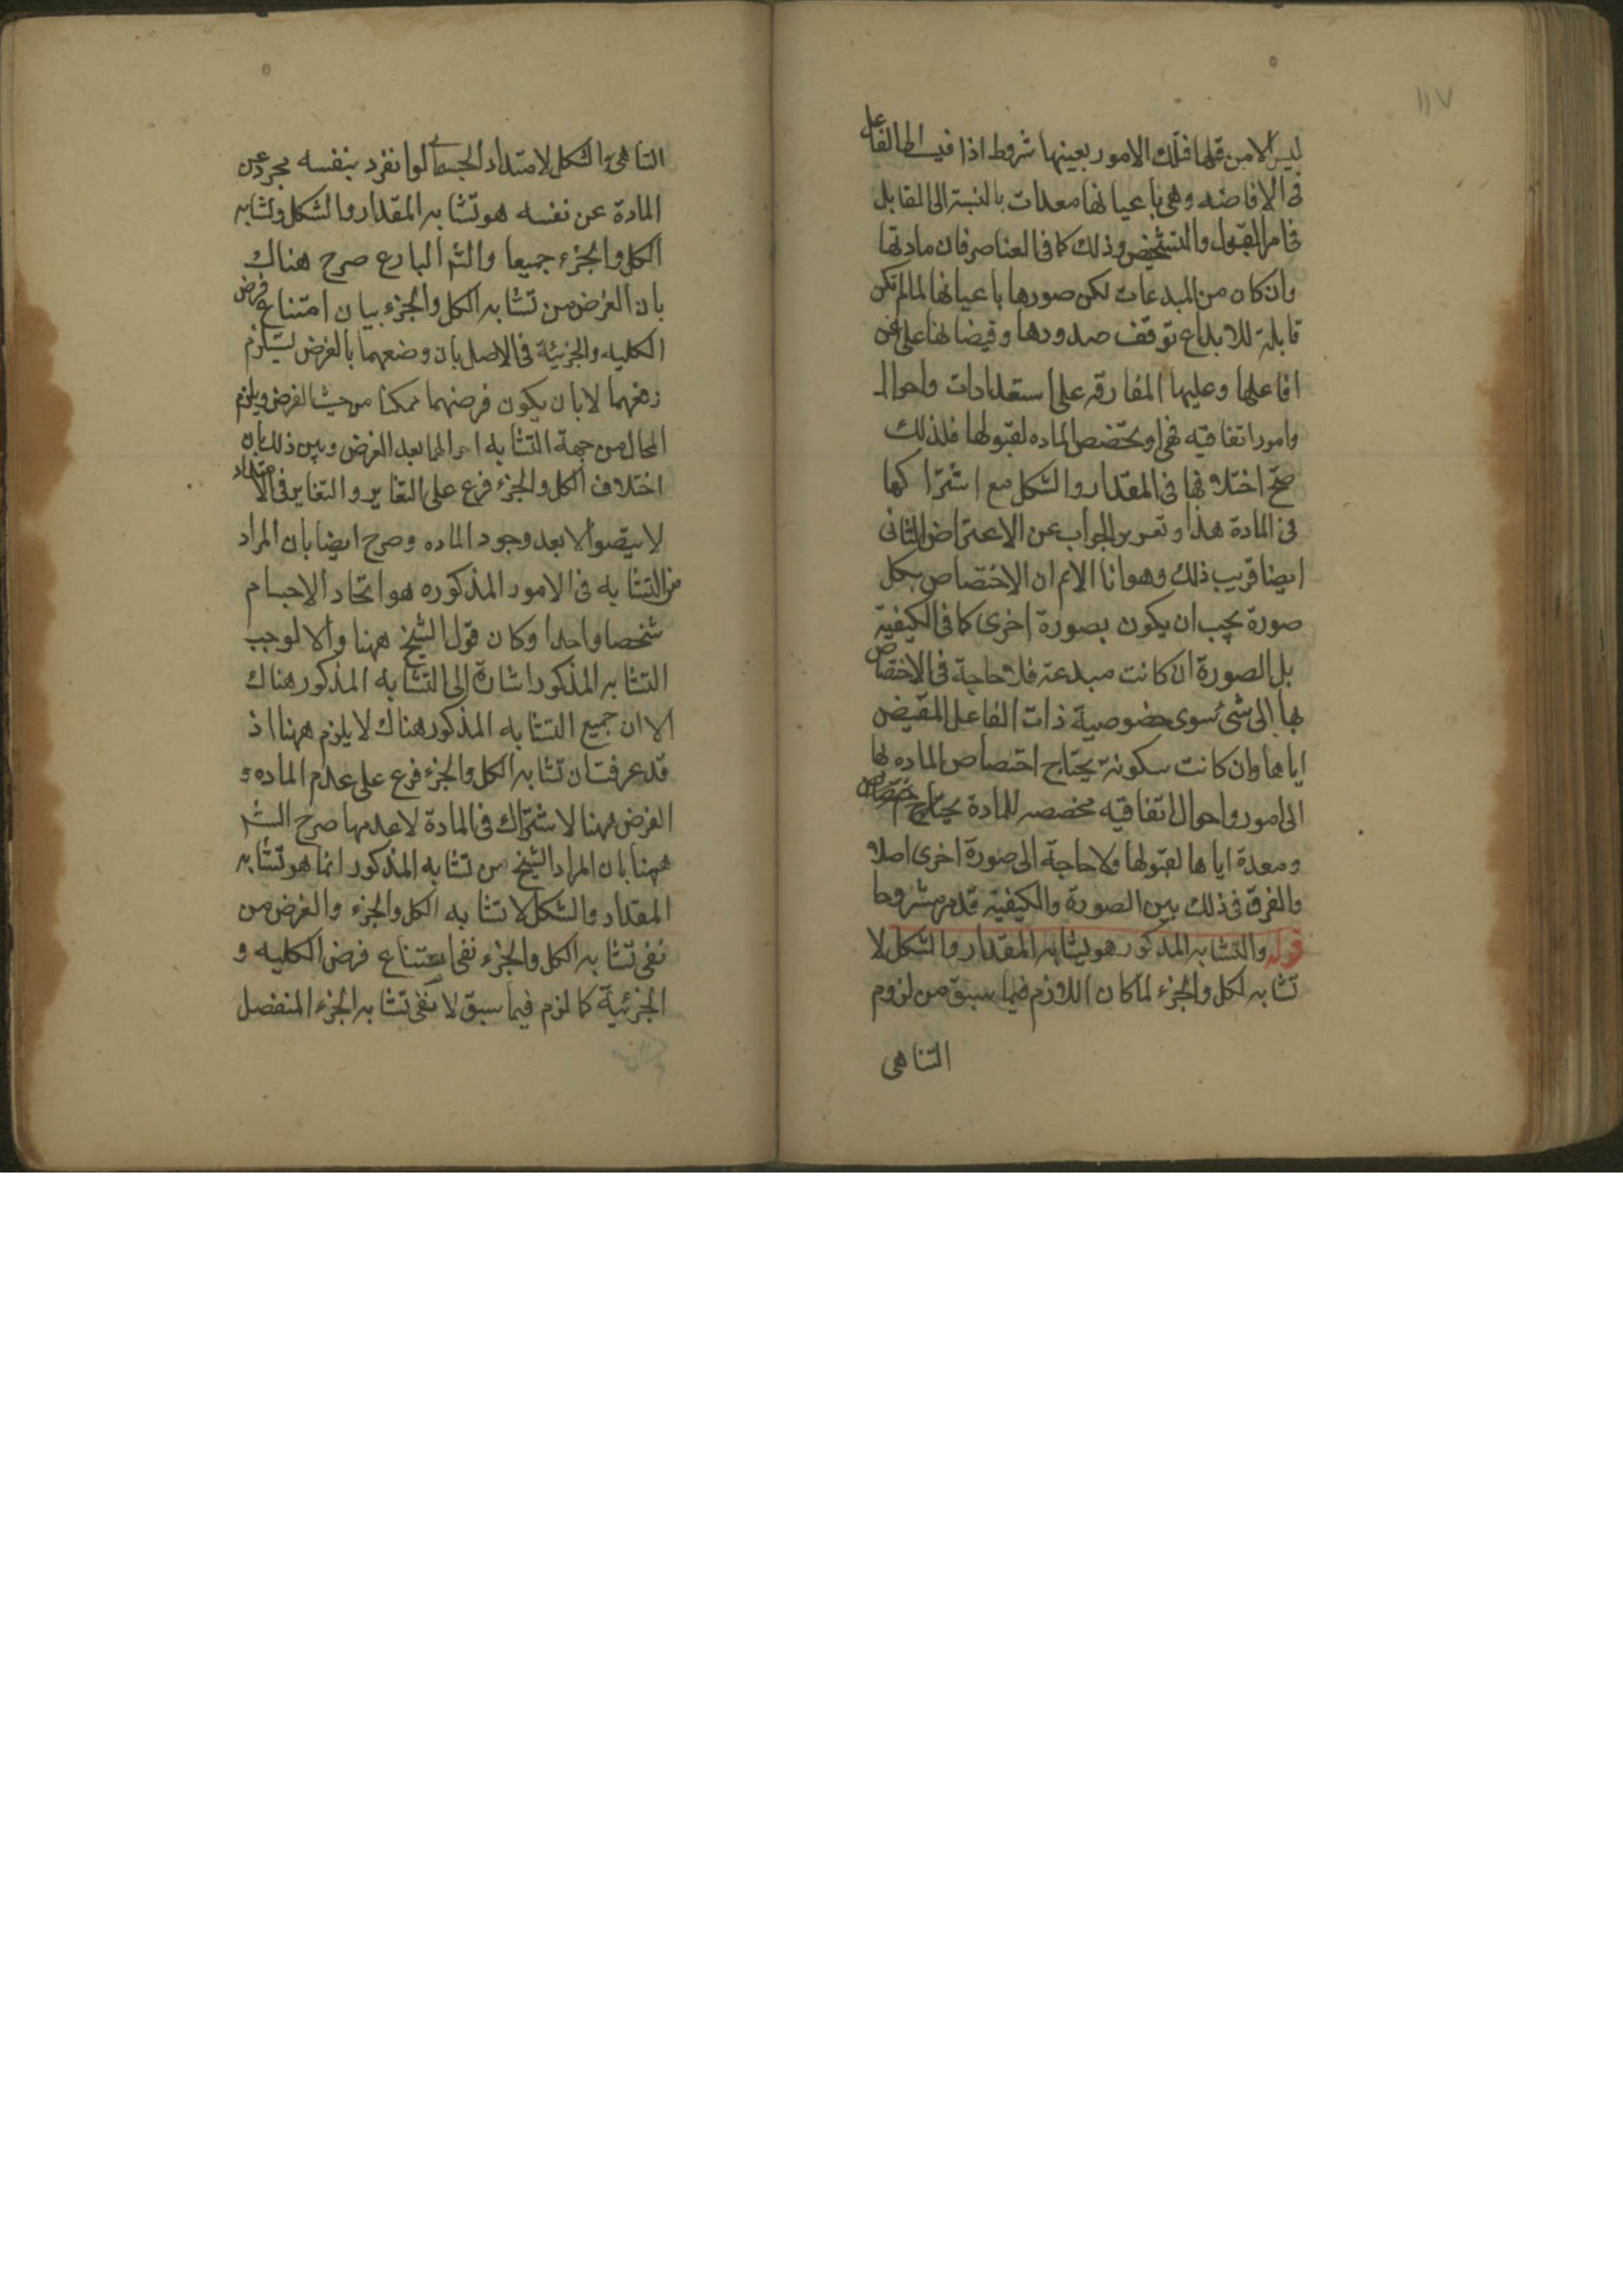 ١١٧
ليس الامن قلها فتلك الامور بعينها شروط اذا الفاعل
فى الافاضه وهى باعيانها معدات بالنسبة الى المقابل
فى امر القبول والتشخيص وذلك كما فى العناصر فان مادتها
وان كان من المبدعات لكن صورها باعيانها لما لم تكن
قابلة للابداع توقف صدورها وفيضانها على عن
افاعلها وعليها المفارقه على استعدادات واحوال
وامور اتفاقيه تخصص الماده لقبولها فلذلك
صح اختلافها فى المقدار والشكل مع اشتراكها
فى المادة هذا وتقرير الجواب عن الاعتراض الثانى
ايضا قريب ذلك وهو انا لانم ان الاختصاص بكل
صورة يجب ان يكون بصورة اخرى كما فى الكيفية
بل الصورة ان كانت مبدعة فلا حاجة فى الاختصاص
بها الى شئ سوى خصوصية ذات الفاعل المفيض
اياها وان كانت سكونة يحتاج اختصاص الماده بها
الى امور واحوال اتفاقيه مخصصه للمادة يحتاج
ومعدة اياها لقبولها ولا حاجة الى صورة اخرى اصلا
والفرق فى ذلك بين الصورة والكيفية قد مر مشروحا
قوله والتشابه المذكور هو تشابه المقدار والشكل لا
تشابه الكل والجزء لما كان اللازم فيما سبق من لزوم
التناهى
التناهى والشكل لامتداد الجسمانى لو انفرد بنفسه مجرد عن
المادة عن نفسه هو تشابه المقدار والشكل وتشابه
الكل والجزء جميعا والشم البارع صرح هناك
بان الغرض من تشابه الكل والجزء بيان امتناع فرض
الكليه والجزئية فى الاصل بان وضعهما بالفرض يستلزم
رفعهما لا بان يكون فرضهما ممكنا من حيث الفرض ويلزم
المحال من جهة التشابه احوالهما بعد الفرض وبين ذلك بان
اختلاف الكل والجزء فرع على التغاير والتغاير فى الامتداد
لا يتصور الا بعد وجود الماده وصرح ايضا بان المراد
من التشابه فى الامور المذكوره هو اتحاد الاجسام
شخصا واحدا وكان قول الشيخ ههنا والا لوجب
التشابه المذكور اشارة الى التشابه المذكور هناك
الا ان جميع التشابه المذكور هناك لا يلزم ههنا اذ
قد عرفت ان تشابه الكل والجزء فرع على عدم الماده و
الغرض ههنا لاشتراك فى المادة لا عدمها صرح الشم
ههنا بان المراد الشيخ من تشابه المذكور انما هو تشابه
المقدار والشكل لا تشابه الكل والجزء والغرض من
نفى تشابه الكل والجزء نفى امتناع فرض الكليه و
الجزئية كما لزم فيما سبق لا نفى تشابه الجزء المنفصل